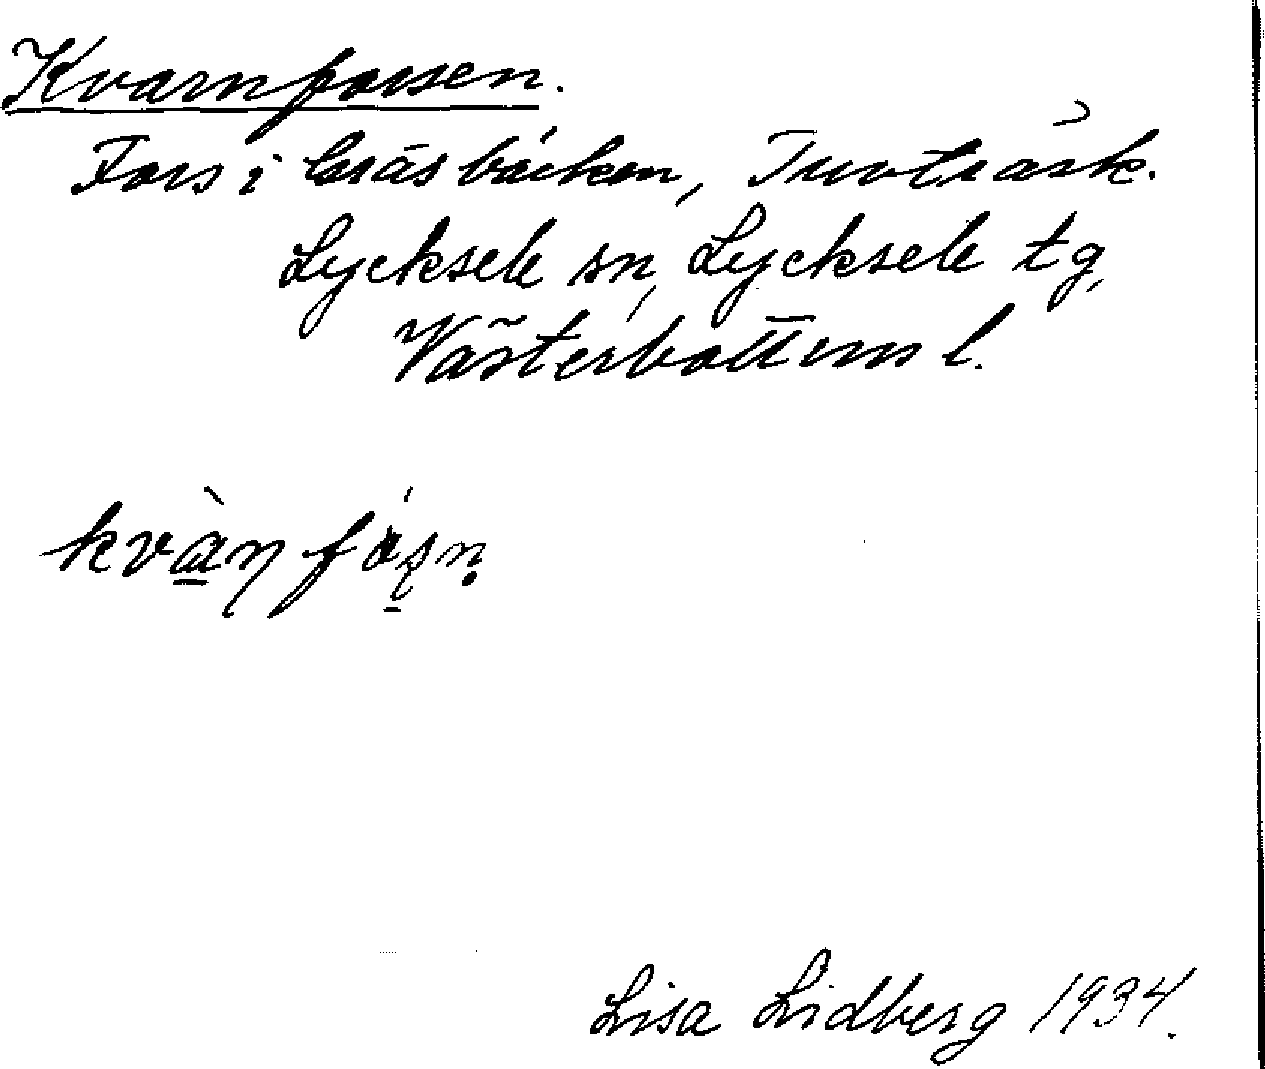 Kvarnforsen.
Fors i bäcken, Tuvträsk.
Lycksele sn, Lycksele tg,
Västerbottens l.
Lisa Lidberg 1934.